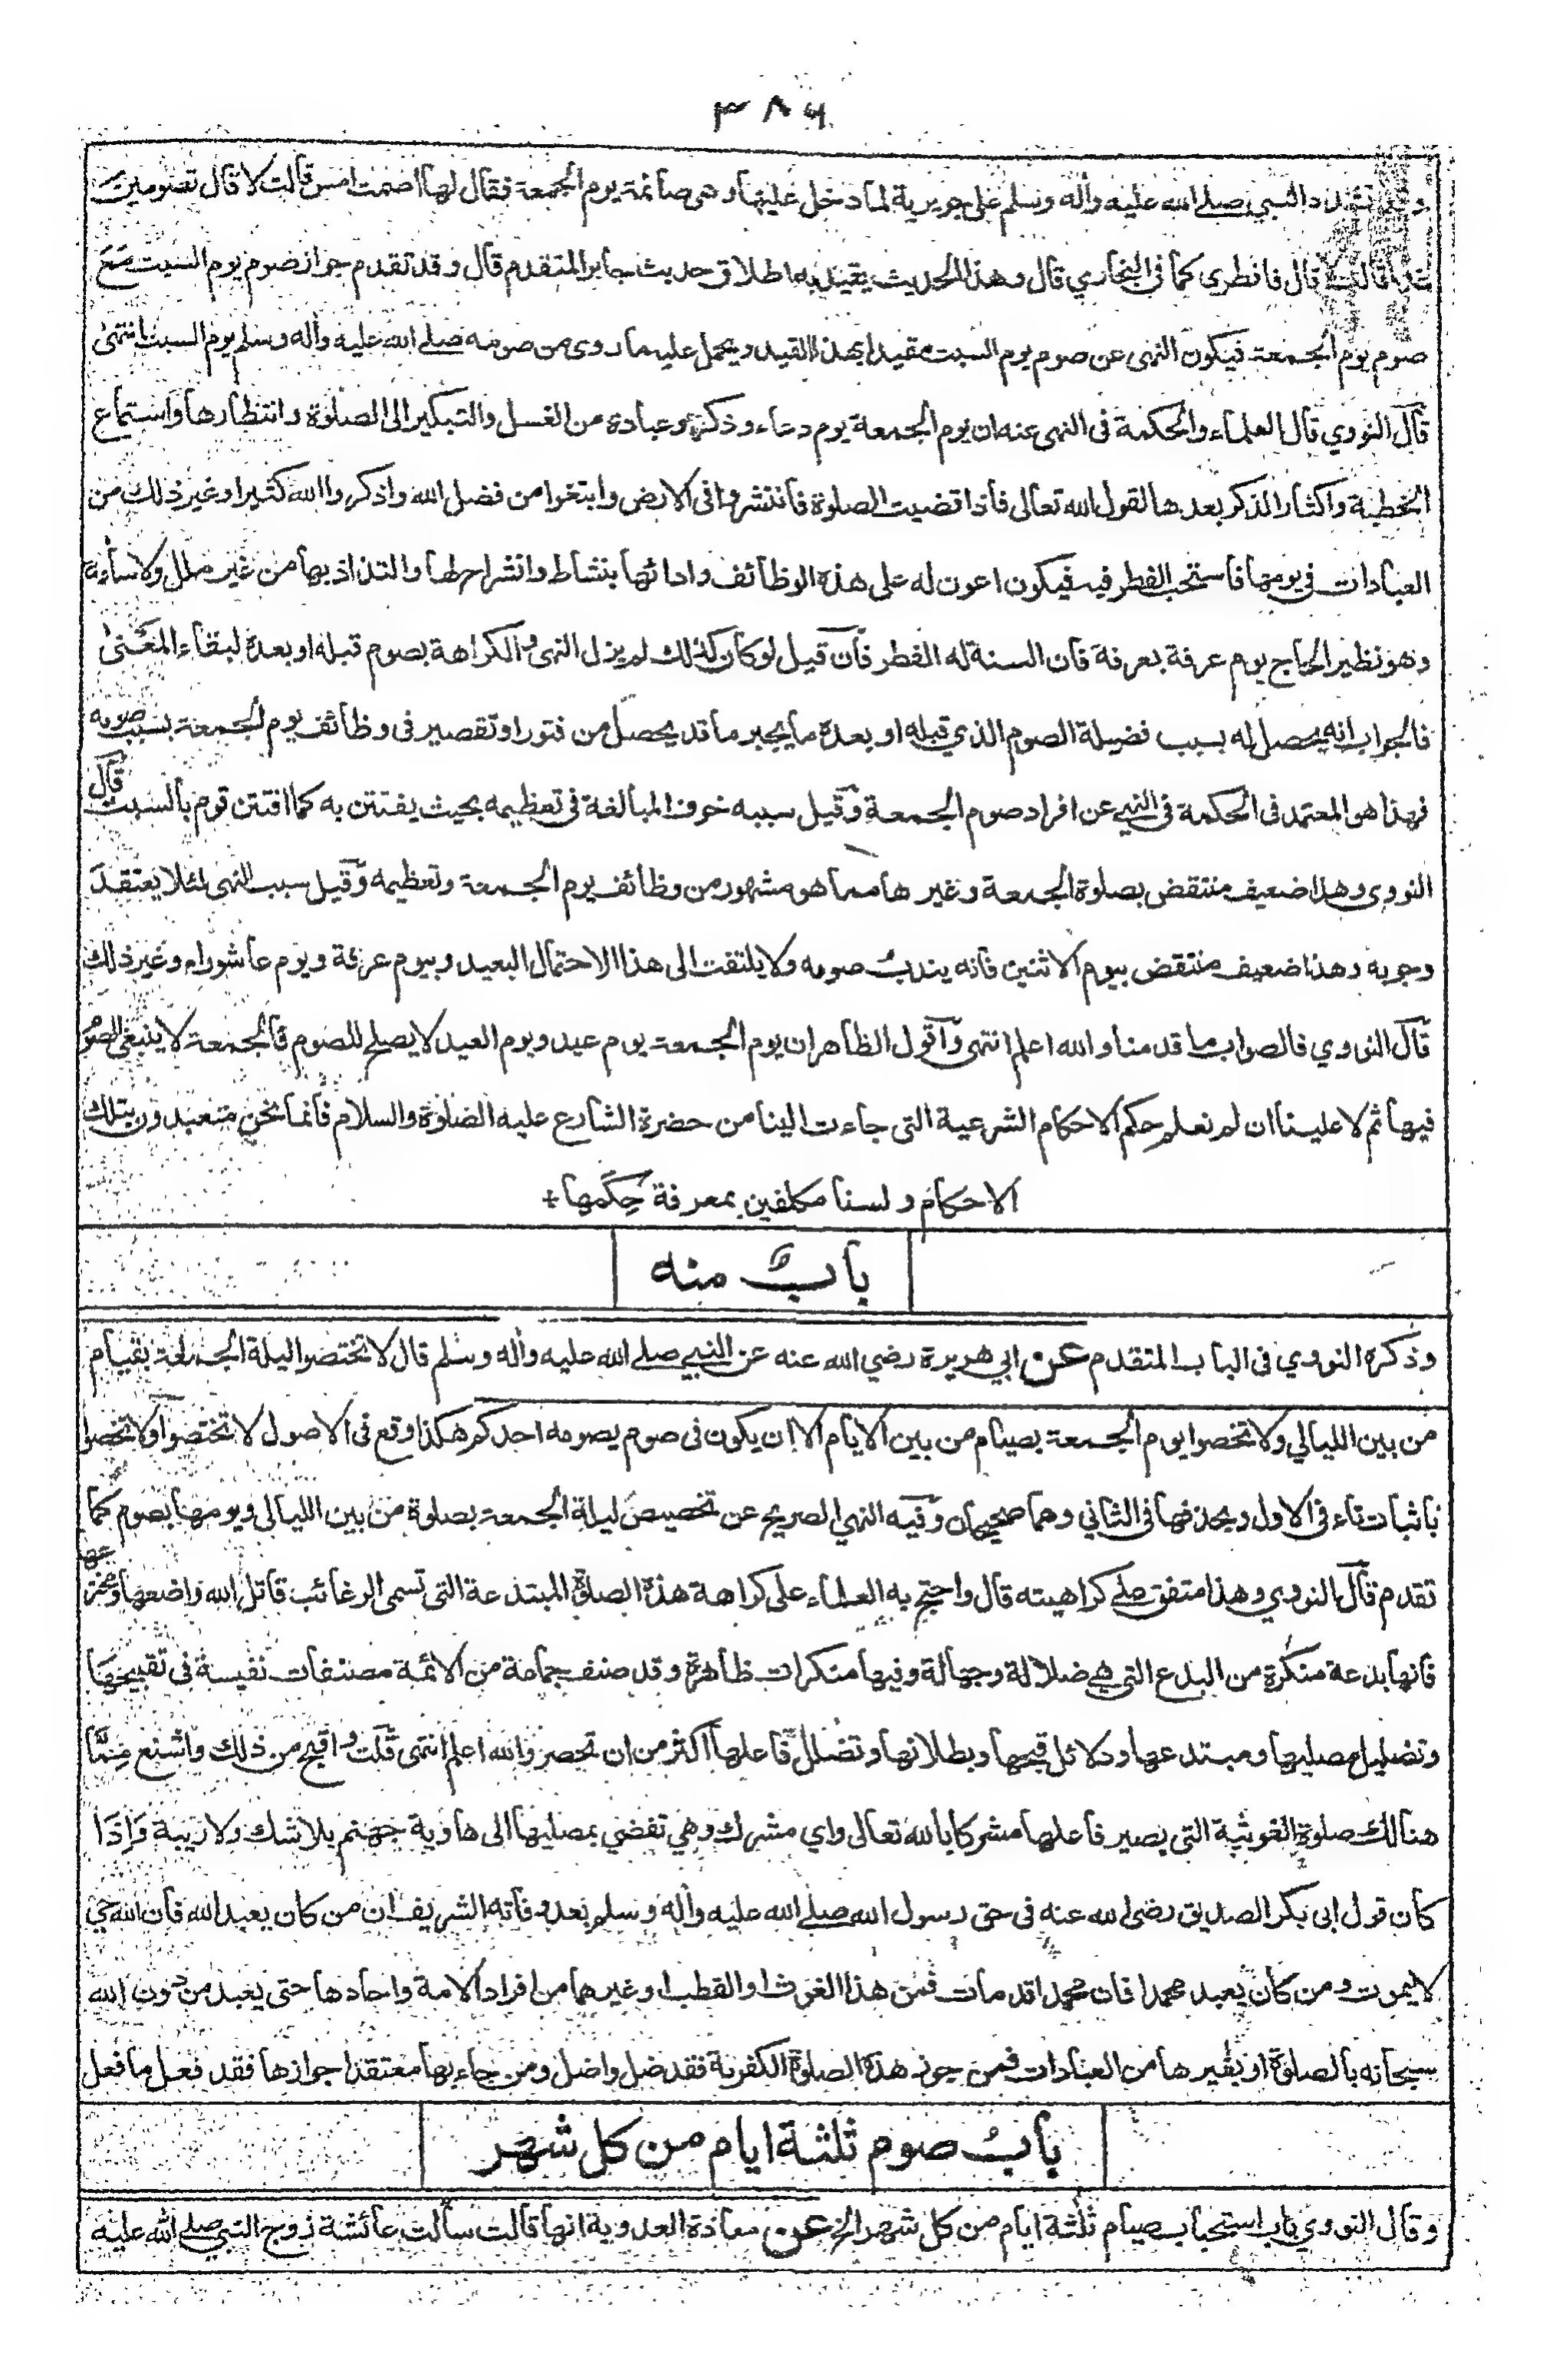 ٣٨٦
النبي صلے الله عليه وأله وسلم على جويرية لما دخل عليها وهى صائمة يوم الجمعة فقال لها اصمت امس قالت لا قال تصومين
غدا قالت لا قال فافطرى كما فى البخاري قال وهذا الحديث يقيد به اطلاق حديث جابر المتقدم قال وقد تقدم جواز صوم يوم السبت مع
صوم يوم الجمعة فيكون النهى عن صوم يوم السبت مقيدا بهذا القيد ويحمل عليه ما روى من صومه صلے الله عليه وأله وسلم يوم السبت انتهى
قال النووي قال العلماء والحكمة فى النهى عنه ان يوم الجمعة يوم دعاء وذكر وعبادة من الغسل والتبكير الى الصلوة وانتظارها واستماع
الخطبة واكثار الذكر بعدها لقول الله تعالى فأذا قضيت الصلوة فأنتشروا فى الارض وابتغوا من فضل الله واذكروا الله كثيرا وغير ذلك من
العبادات فى يومها فأستحب الفطر فيه فيكون اعون له على هذه الوظائف وادائها بنشاط وانشراح لها والتذاذ بها من غير ملل ولا سأمة
وهو نظير الحاج يوم عرفة بعرفة فان السنة له الفطر فأن قيل لو كان كذلك لم يزل النهى والكراهة بصوم قبله او بعده لبقاء المعنى
فالجواب انه يحصل له بسبب فضيلة الصوم الذي قبله او بعده ما يجبر ما قد يحصل من فتور او تقصير فى وظائف يوم الجمعة بسبب صومه
فهذا هو المعتمد فى الحكمة فى النهي عن افراد صوم الجمعة وقيل سببه خوف المبالغة فى تعظيمه بحيث يفتتن به كما افتتن قوم بالسبت قال
النووي وهذا ضعيف منتقض بصلوة الجمعة وغيرها مما هو مشهور من وظائف يوم الجمعة وتعظيمه وقيل سبب النهى لئلا يعتقد
وجوبه وهذا ضعيف منتقض بيوم الاثنين فأنه يندب صومه ولا يلتفت الى هذا الاحتمال البعيد وبيوم عرفة ويوم عاشوراء وغير ذلك
قال النووي فالصواب ما قدمنا والله اعلم انتهى واقول الظاهر ان يوم الجمعة يوم عيد ويوم العيد لا يصلح للصوم فألجمعة لا ينبغى الصوم
فيها ثم لا علينا ان لم نعلم حكم الاحكام الشرعية التى جاءت الينا من حضرة الشارع عليه الصلوة والسلام فأنما نحن متعبدون بتلك
الاحكام ولسنا مكلفين بمعرفة حِكَمها +
باب منه
وذكره النووي فى الباب المتقدم عن ابي هريرة رضي الله عنه عن النبي صلے الله عليه وأله وسلم قال لا تختصوا ليلة الجمعة بقيام
من بين الليالي ولا تخصوا يوم الجمعة بصيام من بين الايام الا ان يكون فى صوم يصومه احدكم هكذا وقع فى الاصول لا تختصوا ولا تخصوا
بأثبات تاء فى الاول وبحذفها فى الثاني وهما صحيحان وفيه النهي الصريح عن تخصيص ليلة الجمعة بصلوة من بين الليالى ويومها بصوم كما
تقدم قال النووي وهذا متفق على كراهيته قال واحتج به العلماء على كراهة هذه الصلوة المبتدعة التى تسمى الرغائب قاتل الله واضعها ومخترعها
فانها بدعة منكرة من البدع التى هى ضلالة وجهالة وفيها منكرات ظاهرة وقد صنف جماعة من الائمة مصنفات نفيسة فى تقبيحها
وتضليل مصليها ومبتدعها ودلائل قبحها وبطلانها وتضليل فأعلها أكثر من ان تحصر والله اعلم انتهى قلت واقبح من ذلك واشنع مما
هنالك صلوة الغوثية التى يصير فأعلها مشركا بالله تعالى واي مشرك وهي تفضي بمصليها الى هاوية جهنم بلا شك ولا ريبة وَاِذَا
كأن قول ابى بكر الصديق رضى الله عنه فى حق رسول الله صلے الله عليه وأله وسلم بعد وفأته الشريف ان من كان يعبد الله فأن الله حي
لا يموت ومن كأن يعبد محمدا فان محمدا قد مات فمن هذا الغوث او القطب او غيرهما من افراد الامة واحادها حتى يعبد من دون الله
سبحانه بالصلوة او بغيرها من العبادات فمن جوز هذه الصلوة الكفرية فقد ضل واضل ومن جاء بها معتقدا جوازها فقد فعل ما فعل
باب صوم ثلثة ايام من كل شهر
وقال النووي باب استحباب صيام ثلثة ايام من كل شهر الخ عن معاذة العدوية انها قالت سألت عائشة زوج النبي صلے الله عليه